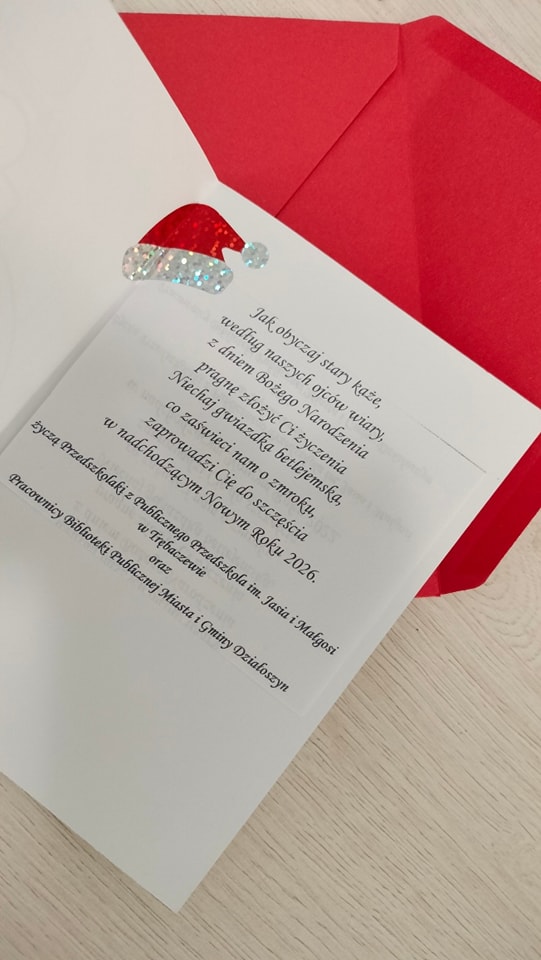 Jak obyczaj stary każe,
według naszych ojców wiary,
z dniem Bożego Narodzenia
pragnę złożyć Ci życzenia
Niechaj gwiazdka betlejemska,
co zaświeci nam o zmroku,
zaprowadzi Cię do szczęścia
w nadchodzącym Nowym Roku 2026.
życzą Przedszkolaki z Publicznego Przedszkola im. Jasia i Małgosi
w Trębaczewie
oraz
Pracownicy Biblioteki Publicznej Miasta i Gminy Działoszyn